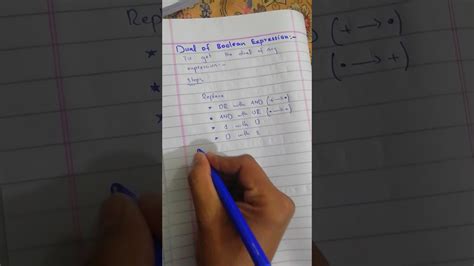 Dual of Boolean Expression:-
To get the dual of any
expression:-
steps
Replace
* OR with AND (+ → •)
* AND with OR (• → +)
* 1 with 0
* 0 with 1